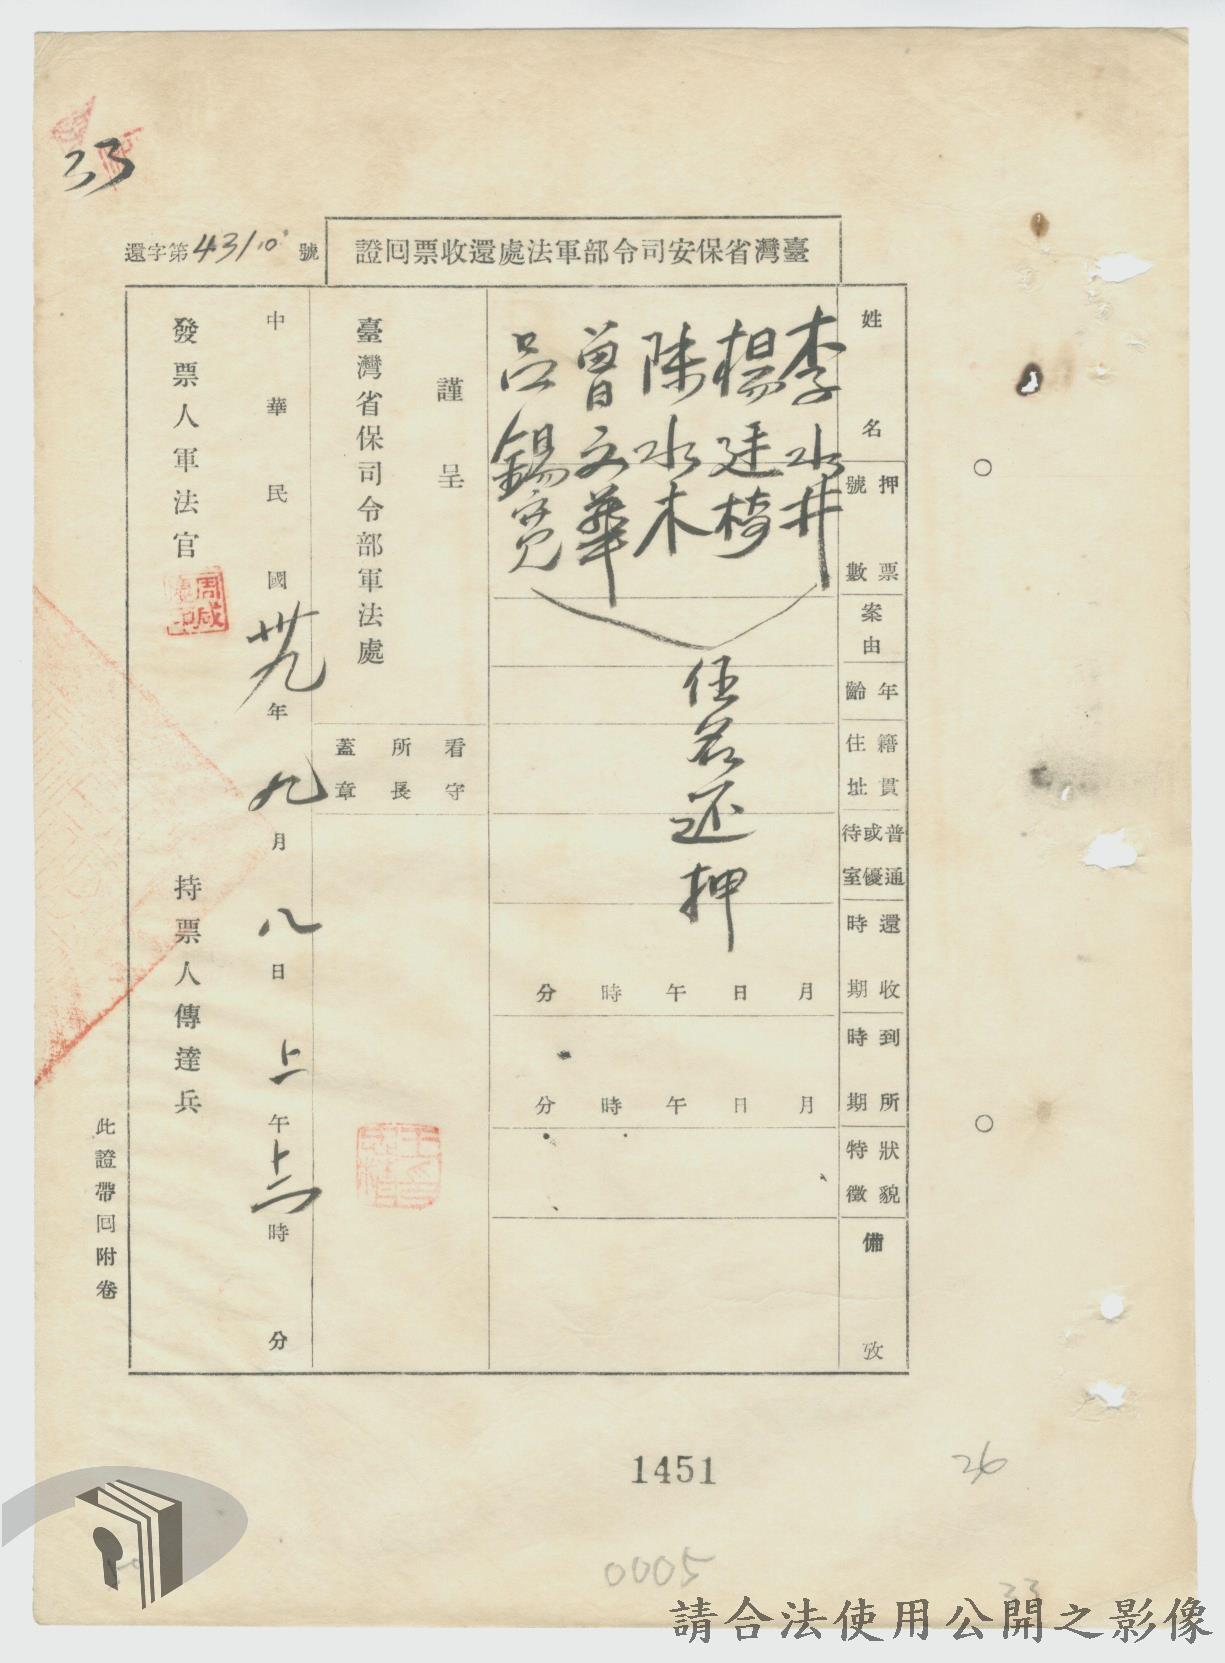 33
臺灣省保安司令部軍法處還收票回證
還字第43110號
姓名
押票號數
案由
年齡
籍貫住址
普通或優待室
還收時期
到所時期
狀貌特徵
備攷
李水井
楊廷椅
陳水木
曾文華
呂錫寬
伍名还押
月日午時分
月日午時分
謹呈
臺灣省保司令部軍法處
看守所長蓋章
中華民國卅九年九月八日上午十二時分
發票人軍法官
持票人傳達兵
此證帶回附卷
1451
26
0005
33
請合法使用公開之影像